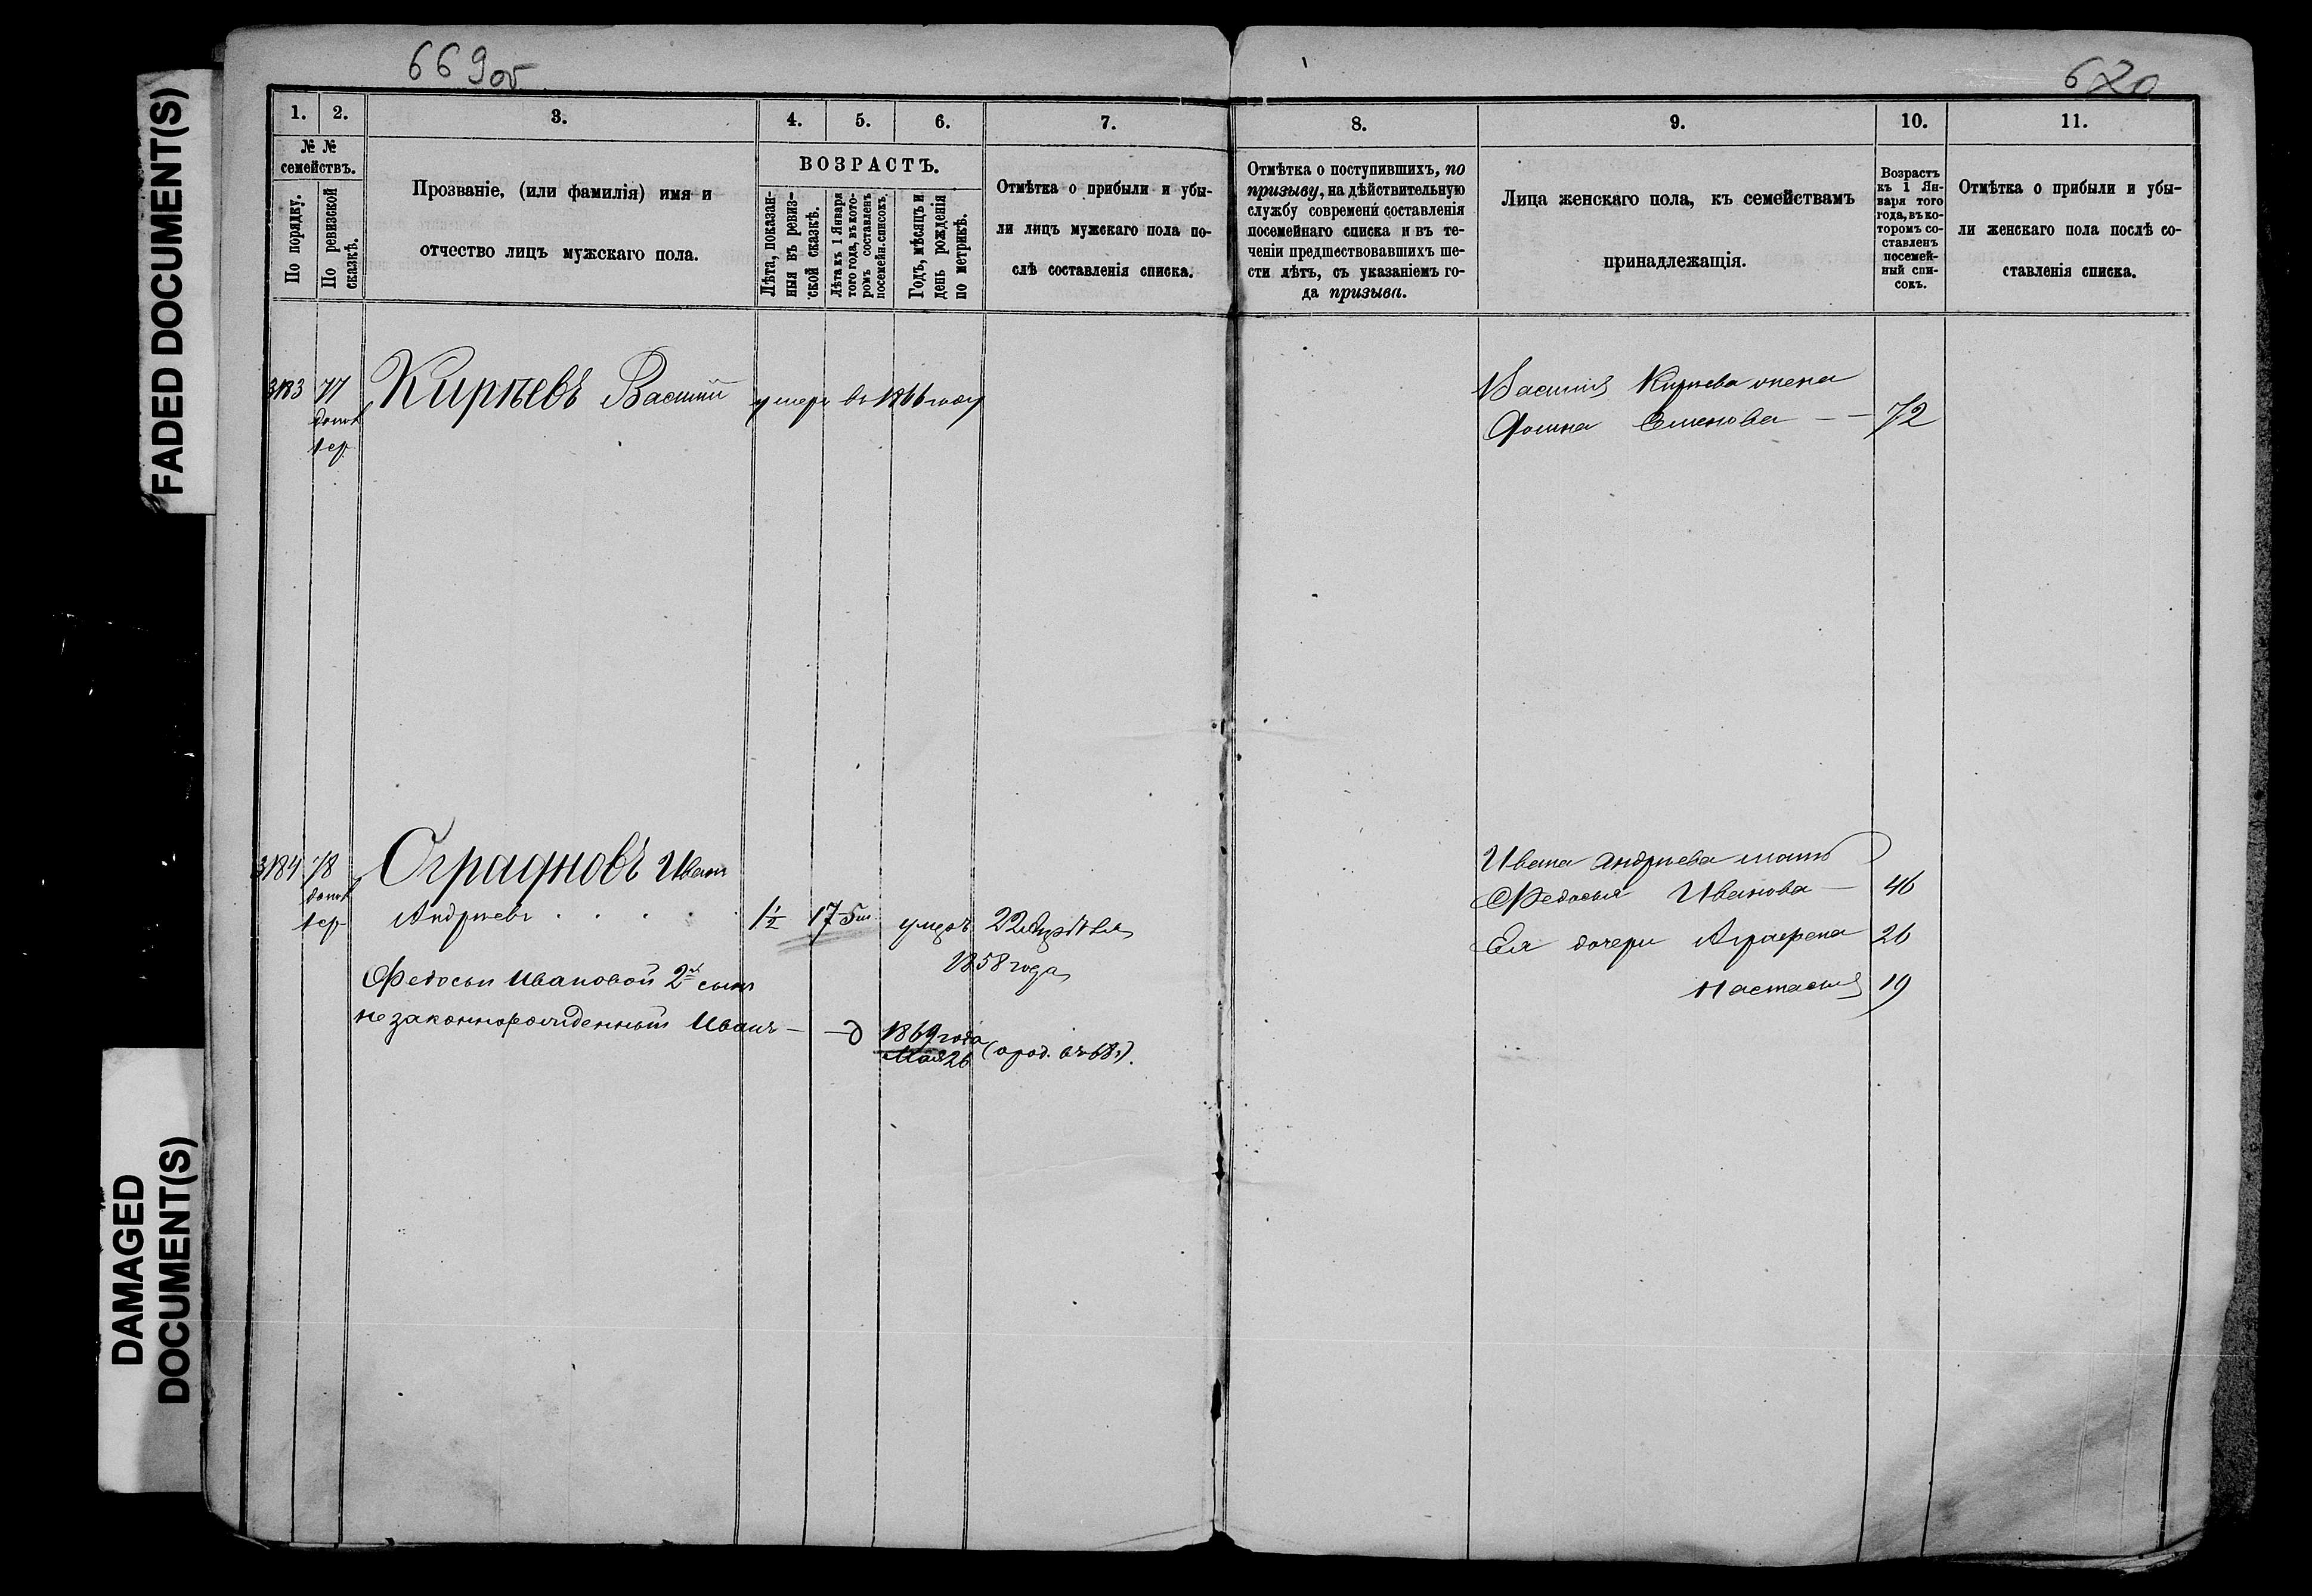 669 об
670
FADED DOCUMENT(S)
DAMAGED
DOCUMENT(S)
1.
2.
3.
4.
5.
6.
7.
8.
9.
10.
11.
№ №
семействъ.
По порядку.
По ревизской
сказкѣ.
Прозваніе, (или фамилія) имя и
отчество лицъ мужскаго пола.
ВОЗРАСТЪ.
Лѣта, показан-
ныя въ ревиз-
ской сказкѣ.
Лѣта къ 1 Января
того года, въ кото-
ромъ составленъ
посемейн. списокъ.
Годъ, мѣсяцъ и
день рожденія
по метрикѣ.
Отмѣтка о прибыли и убы-
ли лицъ мужскаго пола по-
слѣ составленія списка.
Отмѣтка о поступившихъ, по
призыву, на дѣйствительную
службу современи составленія
посемейнаго списка и въ те-
ченіи предшествовавшихъ ше-
сти лѣтъ, съ указаніемъ го-
да призыва.
Лица женскаго пола, къ семействамъ
принадлежащія.
Возрастъ
къ 1 Ян-
варя того
года, въ ко-
торомъ со-
ставленъ
посемей-
ный спи-
сокъ.
Отмѣтка о прибыли и убы-
ли женскаго пола послѣ со-
ставленія списка.
3183 77 Кирѣевъ Василій умеръ въ 1866 году
Василія Кирѣева жена
Семенова — — 72
3184 78 Иванъ
Андреевъ 1½ 17 умеръ 22
1858 года
Федосьи Ивановой 2й сынъ
незаконнорожденный Иванъ — — 1869 года
Мая 26
Ивана Андреева мать
Федосья Иванова — 46
Ея дочери Аграфена 26
Настасия 19